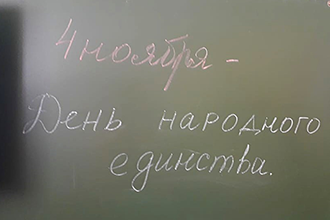 4 ноября -
День народного
единства.